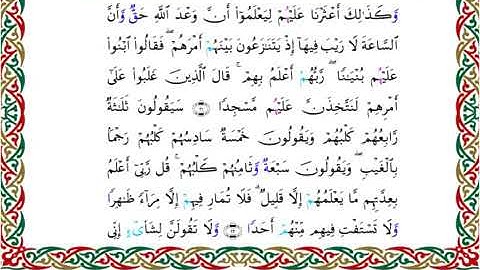 وَكَذَٰلِكَ أَعْثَرْنَا عَلَيْهِمْ لِيَعْلَمُوٓا۟ أَنَّ وَعْدَ ٱللَّهِ حَقٌّ وَأَنَّ
ٱلسَّاعَةَ لَا رَيْبَ فِيهَآ إِذْ يَتَنَٰزَعُونَ بَيْنَهُمْ أَمْرَهُمْ ۖ فَقَالُوا۟ ٱبْنُوا۟
عَلَيْهِم بُنْيَٰنًا ۖ رَّبُّهُمْ أَعْلَمُ بِهِمْ ۚ قَالَ ٱلَّذِينَ غَلَبُوا۟ عَلَىٰٓ
أَمْرِهِمْ لَنَتَّخِذَنَّ عَلَيْهِم مَّسْجِدًا ۝٢١ سَيَقُولُونَ ثَلَٰثَةٌ
رَّابِعُهُمْ كَلْبُهُمْ وَيَقُولُونَ خَمْسَةٌ سَادِسُهُمْ كَلْبُهُمْ رَجْمًۢا
بِٱلْغَيْبِ ۖ وَيَقُولُونَ سَبْعَةٌ وَثَامِنُهُمْ كَلْبُهُمْ ۚ قُل رَّبِّىٓ أَعْلَمُ
بِعِدَّتِهِم مَّا يَعْلَمُهُمْ إِلَّا قَلِيلٌ ۗ فَلَا تُمَارِ فِيهِمْ إِلَّا مِرَآءً ظَٰهِرًا
وَلَا تَسْتَفْتِ فِيهِم مِّنْهُمْ أَحَدًا ۝٢٢ وَلَا تَقُولَنَّ لِشَا۟ىْءٍ إِنِّى